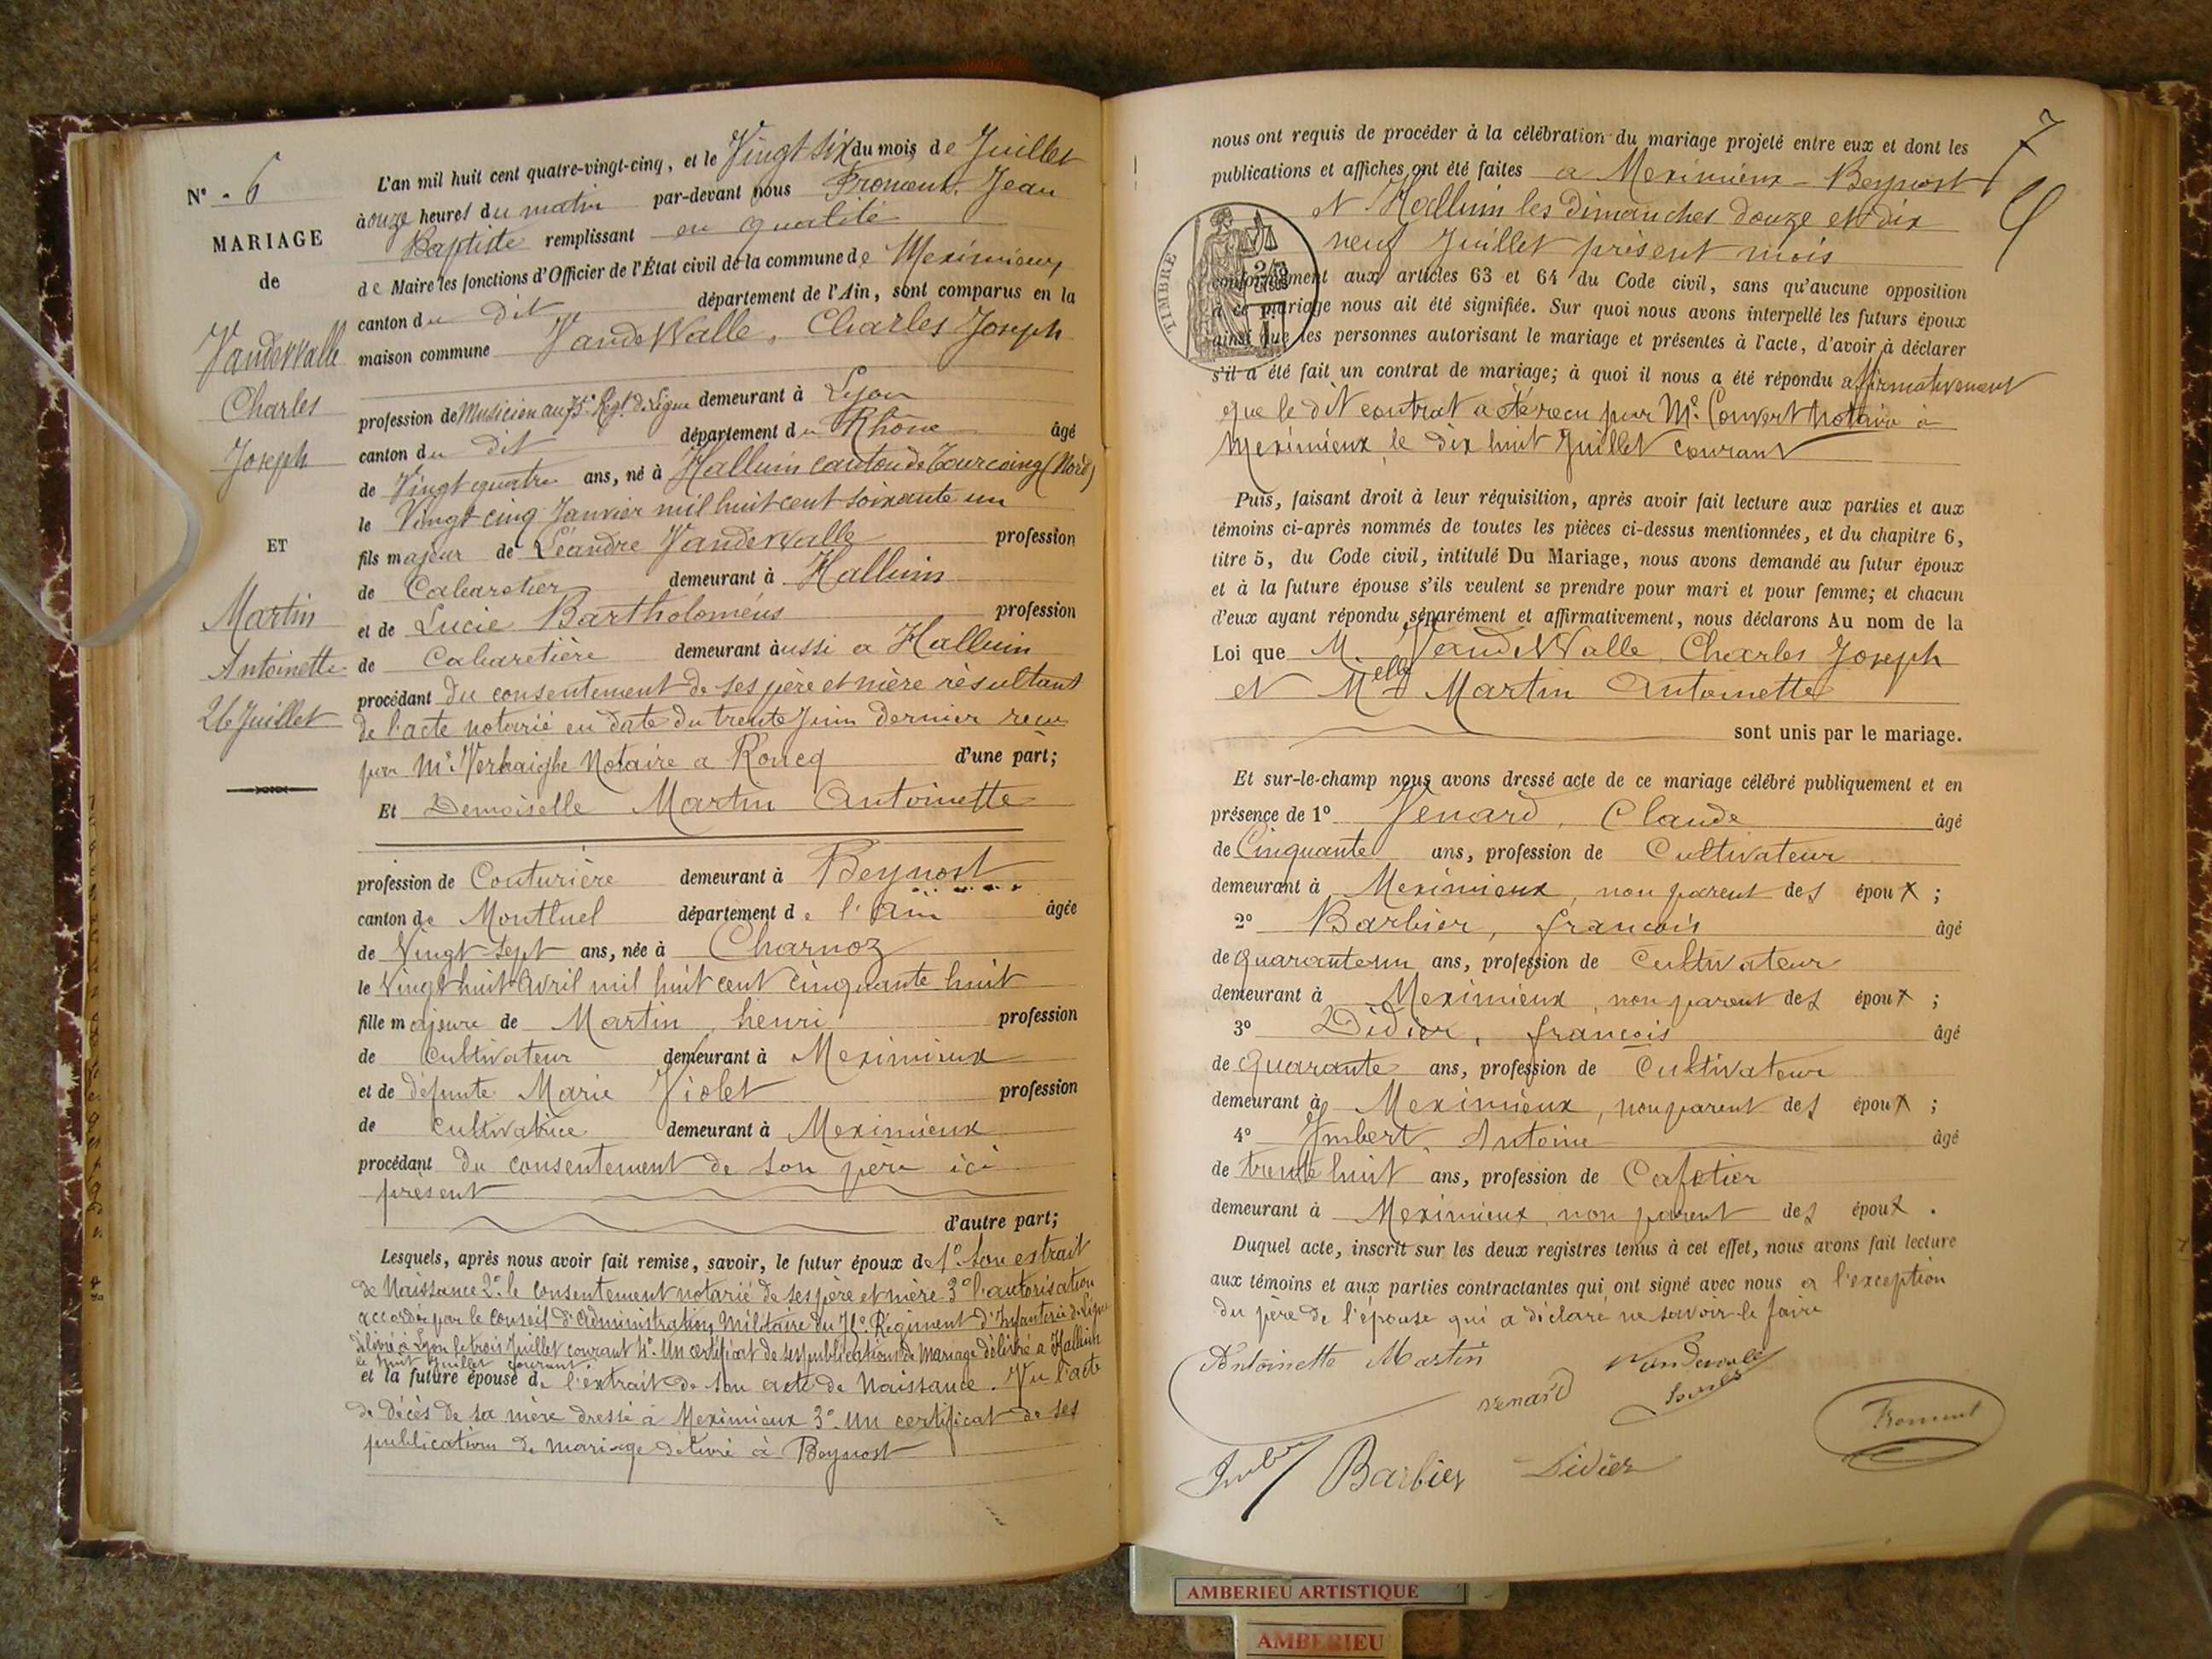 N° - 6
MARIAGE
de
Vandewalle
Charles
Joseph
ET
Martin
Antoinette
26 Juillet
L'an mil huit cent quatre-vingt-cinq, et le Vingt six du mois de Juillet
à onze heures du matin par-devant nous Froment, Jean
Baptiste remplissant en qualité
de Maire les fonctions d'Officier de l'État civil de la commune de Meximieux
canton du dit département de l'Ain, sont comparus en la
maison commune VandeWalle, Charles Joseph
profession de Musicien au Regt de Ligne demeurant à Lyon
canton du dit département du Rhône âgé
de Vingt quatre ans, né à Halluin canton de Tourcoing (Nord)
le Vingt cinq Janvier mil huit cent soixante un
fils majeur de Léandre Vandewalle profession
de Cabaretier demeurant à Halluin
et de Lucie Bartholoméus profession
de Cabaretière demeurant aussi a Halluin
procédant du consentement de ses père et mère résultant
de l'acte notarié en date du trente Juin dernier recu
par Me Verhaighe Notaire a Roncq d'une part;
Et Demoiselle Martin Antoinette
profession de Couturière demeurant à Beynost
canton de Montluel département de l'Ain âgée
de Vingt-sept ans, née à Charnoz
le Vingt huit Avril mil huit cent cinquante huit
fille majeure de Martin, henri profession
de cultivateur demeurant à Meximieux
et de défunte Marie Violet profession
de cultivatrice demeurant à Meximieux
procédant du consentement de son père ici
présent
d'autre part;
Lesquels, après nous avoir fait remise, savoir, le futur époux de 1° Son extrait
de Naissance 2° le consentement notarié de ses père et mère 3° l'autorisation
accordée par le Conseil d'Administration Militaire du Régiment d'Infanterie de Ligne
délivré à Lyon le trois Juillet courant 4° Un certificat de ses publications de Mariage délivré a Halluin
le huit Juillet courant
et la future épouse de l'extrait de son acte de Naissance. Vu l'acte
de décès de sa mère dressé à Meximieux 3° un certificat de ses
publications de mariage délivré à Beynost
7
nous ont requis de procéder à la célébration du mariage projeté entre eux et dont les
publications et affiches ont été faites a Meximieux - Beynost
et Halluin les dimanches douze et dix
neuf Juillet présent mois
TIMBRE
conformément aux articles 63 et 64 du Code civil, sans qu'aucune opposition
à ce mariage nous ait été signifiée. Sur quoi nous avons interpellé les futurs époux
ainsi que les personnes autorisant le mariage et présentes à l'acte, d'avoir à déclarer
s'il a été fait un contrat de mariage; à quoi il nous a été répondu affirmativement
que le dit contrat a été recu par Me Convert Notaire à
Meximieux le dix huit Juillet courant
Puis, faisant droit à leur réquisition, après avoir fait lecture aux parties et aux
témoins ci-après nommés de toutes les pièces ci-dessus mentionnées, et du chapitre 6,
titre 5, du Code civil, intitulé Du Mariage, nous avons demandé au futur époux
et à la future épouse s'ils veulent se prendre pour mari et pour femme; et chacun
d'eux ayant répondu séparément et affirmativement, nous déclarons Au nom de la
Loi que M. VandeWalle Charles Joseph
et Melle Martin Antoinette
sont unis par le mariage.
Et sur-le-champ nous avons dressé acte de ce mariage célébré publiquement et en
présence de 1° Venard, Claude âgé
de Cinquante ans, profession de Cultivateur
demeurant à Meximieux, non parent des époux ;
2° Barbier, francois âgé
de quarante un ans, profession de Cultivateur
demeurant à Meximieux, non parent des époux ;
3° Didier, françois âgé
de quarante ans, profession de Cultivateur
demeurant à Meximieux, non parent des époux ;
4° Imbert, Antoine âgé
de trente huit ans, profession de Cafetier
demeurant à Meximieux, non parent des époux .
Duquel acte, inscrit sur les deux registres tenus à cet effet, nous avons fait lecture
aux témoins et aux parties contractantes qui ont signé avec nous a l'exception
du père de l'épouse qui a déclaré ne savoir le faire
Antoinette Martin Vandewalle
venard Froment
Barbier Didier
AMBERIEU ARTISTIQUE
AMBERIEU